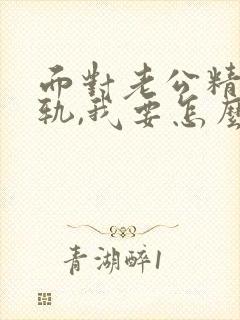 而對老公精
軌,我要怎麼
青湖醉1